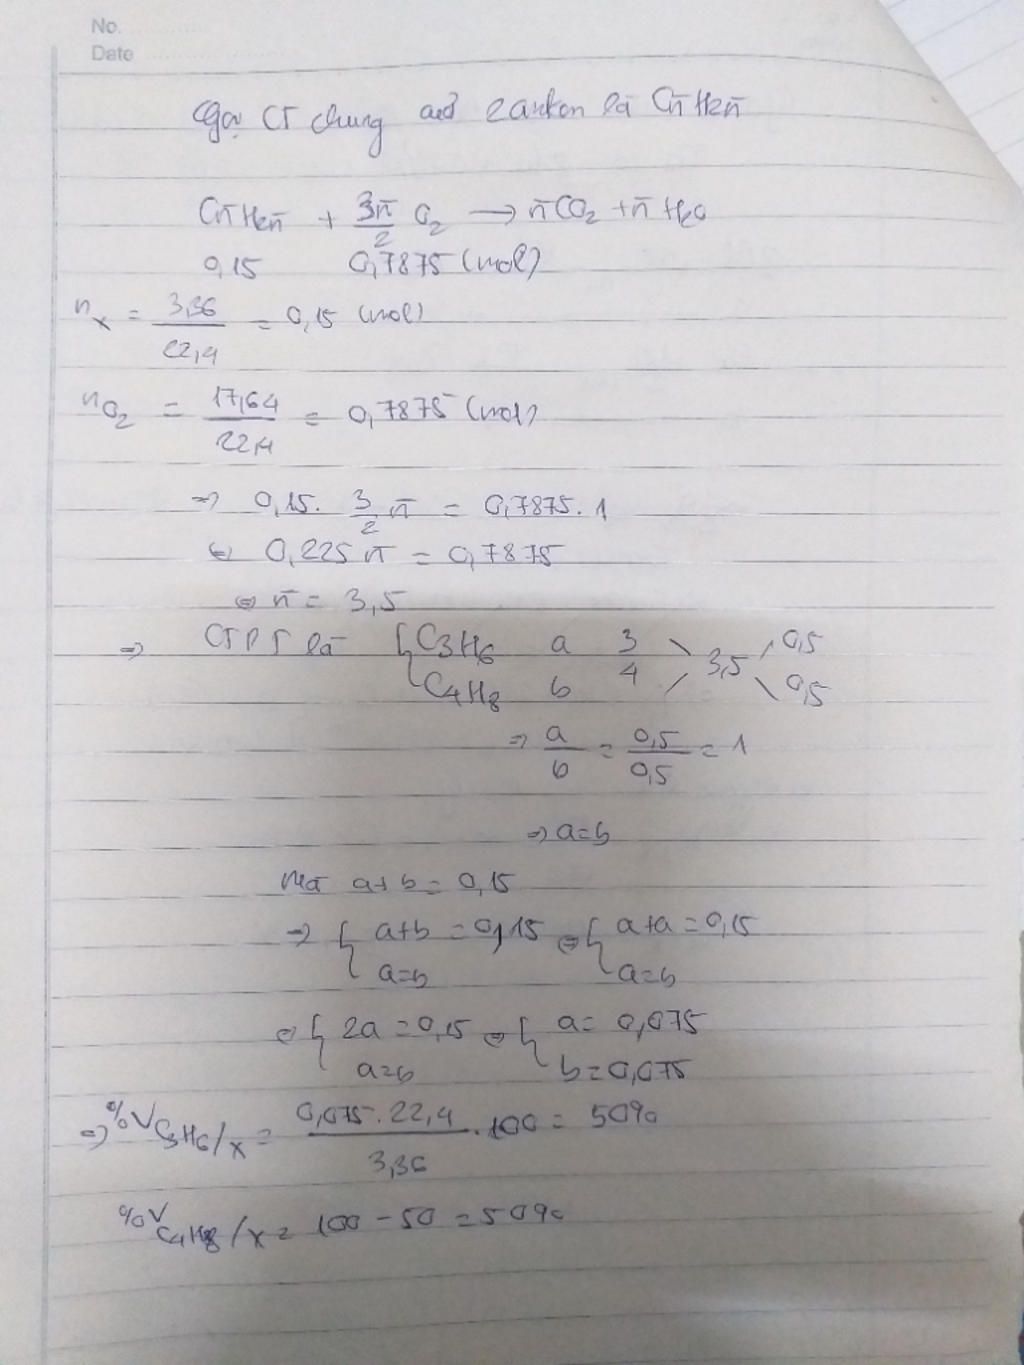 No.
Date
Gọi CT chung của 2 anken là Cn̄H2n̄
Cn̄H2n̄ + 3n̄/2 O2 → n̄CO2 + n̄H2O
0,15 0,7875 (mol)
nx = 3,36/22,4 = 0,15 (mol)
nO2 = 17,64/22,4 = 0,7875 (mol)
⇒ 0,15. 3/2 n̄ = 0,7875.1
⇔ 0,225 n̄ = 0,7875
⇔ n̄ = 3,5
⇒ CTPT là { C3H6 a 3 3,5 0,5
C4H8 b 4 0,5
⇒ a/b = 0,5/0,5 = 1
⇒ a=b
Mà a+b = 0,15
⇒ { a+b = 0,15 ⇔ { a+a = 0,15
a=b a=b
⇔ { 2a = 0,15 ⇔ { a = 0,075
a=b b = 0,075
⇒ %V C3H6/x = 0,075.22,4/3,36 .100 = 50%
%V C4H8/x = 100 - 50 = 50%